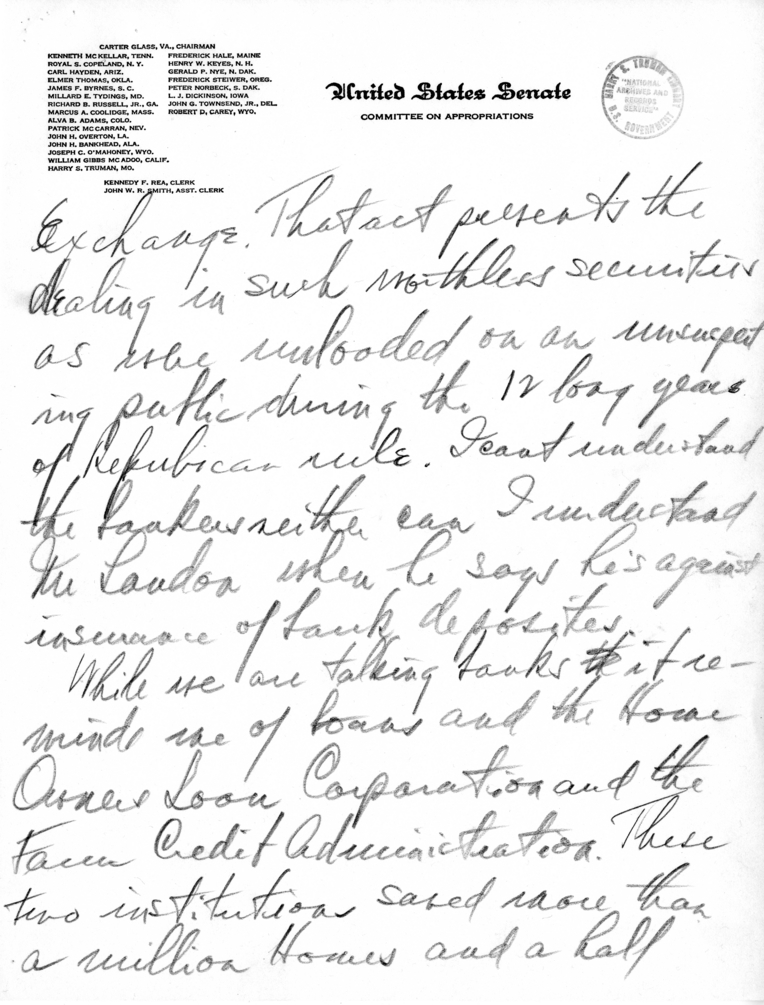 CARTER GLASS, VA., CHAIRMAN
KENNETH MCKELLAR, TENN. FREDERICK HALE, MAINE
ROYAL S. COPELAND, N. Y. HENRY W. KEYES, N. H.
CARL HAYDEN, ARIZ. GERALD P. NYE, N. DAK.
ELMER THOMAS, OKLA. FREDERICK STEIWER, OREG.
JAMES F. BYRNES, S. C. PETER NORBECK, S. DAK.
MILLARD E. TYDINGS, MD. L. J. DICKINSON, IOWA
RICHARD B. RUSSELL, JR., GA. JOHN G. TOWNSEND, JR., DEL.
MARCUS A. COOLIDGE, MASS. ROBERT D. CAREY, WYO.
ALVA B. ADAMS, COLO.
PATRICK MCCARRAN, NEV.
JOHN H. OVERTON, LA.
JOHN H. BANKHEAD, ALA.
JOSEPH C. O'MAHONEY, WYO.
WILLIAM GIBBS MC ADOO, CALIF.
HARRY S. TRUMAN, MO.
KENNEDY F. REA, CLERK
JOHN W. R. SMITH, ASST. CLERK
United States Senate
COMMITTEE ON APPROPRIATIONS
HARRY S. TRUMAN LIBRARY
"NATIONAL
ARCHIVES AND
RECORDS
SERVICE"
U.S. GOVERNMENT
Exchange. That act presents the
dealing in such worthless securities
as were unlooded on an unsuspect
ing public during the 12 long years
of Republican rule. I cant understand
the bankers neither can I understand
Mr Landon when he says he's against
insurance of bank deposites.
While we are talking banks it re-
minds me of loans and the Home
Owners Loan Corporation and the
Farm Credit Administration. These
two institutions saved more than
a million Homes and a half